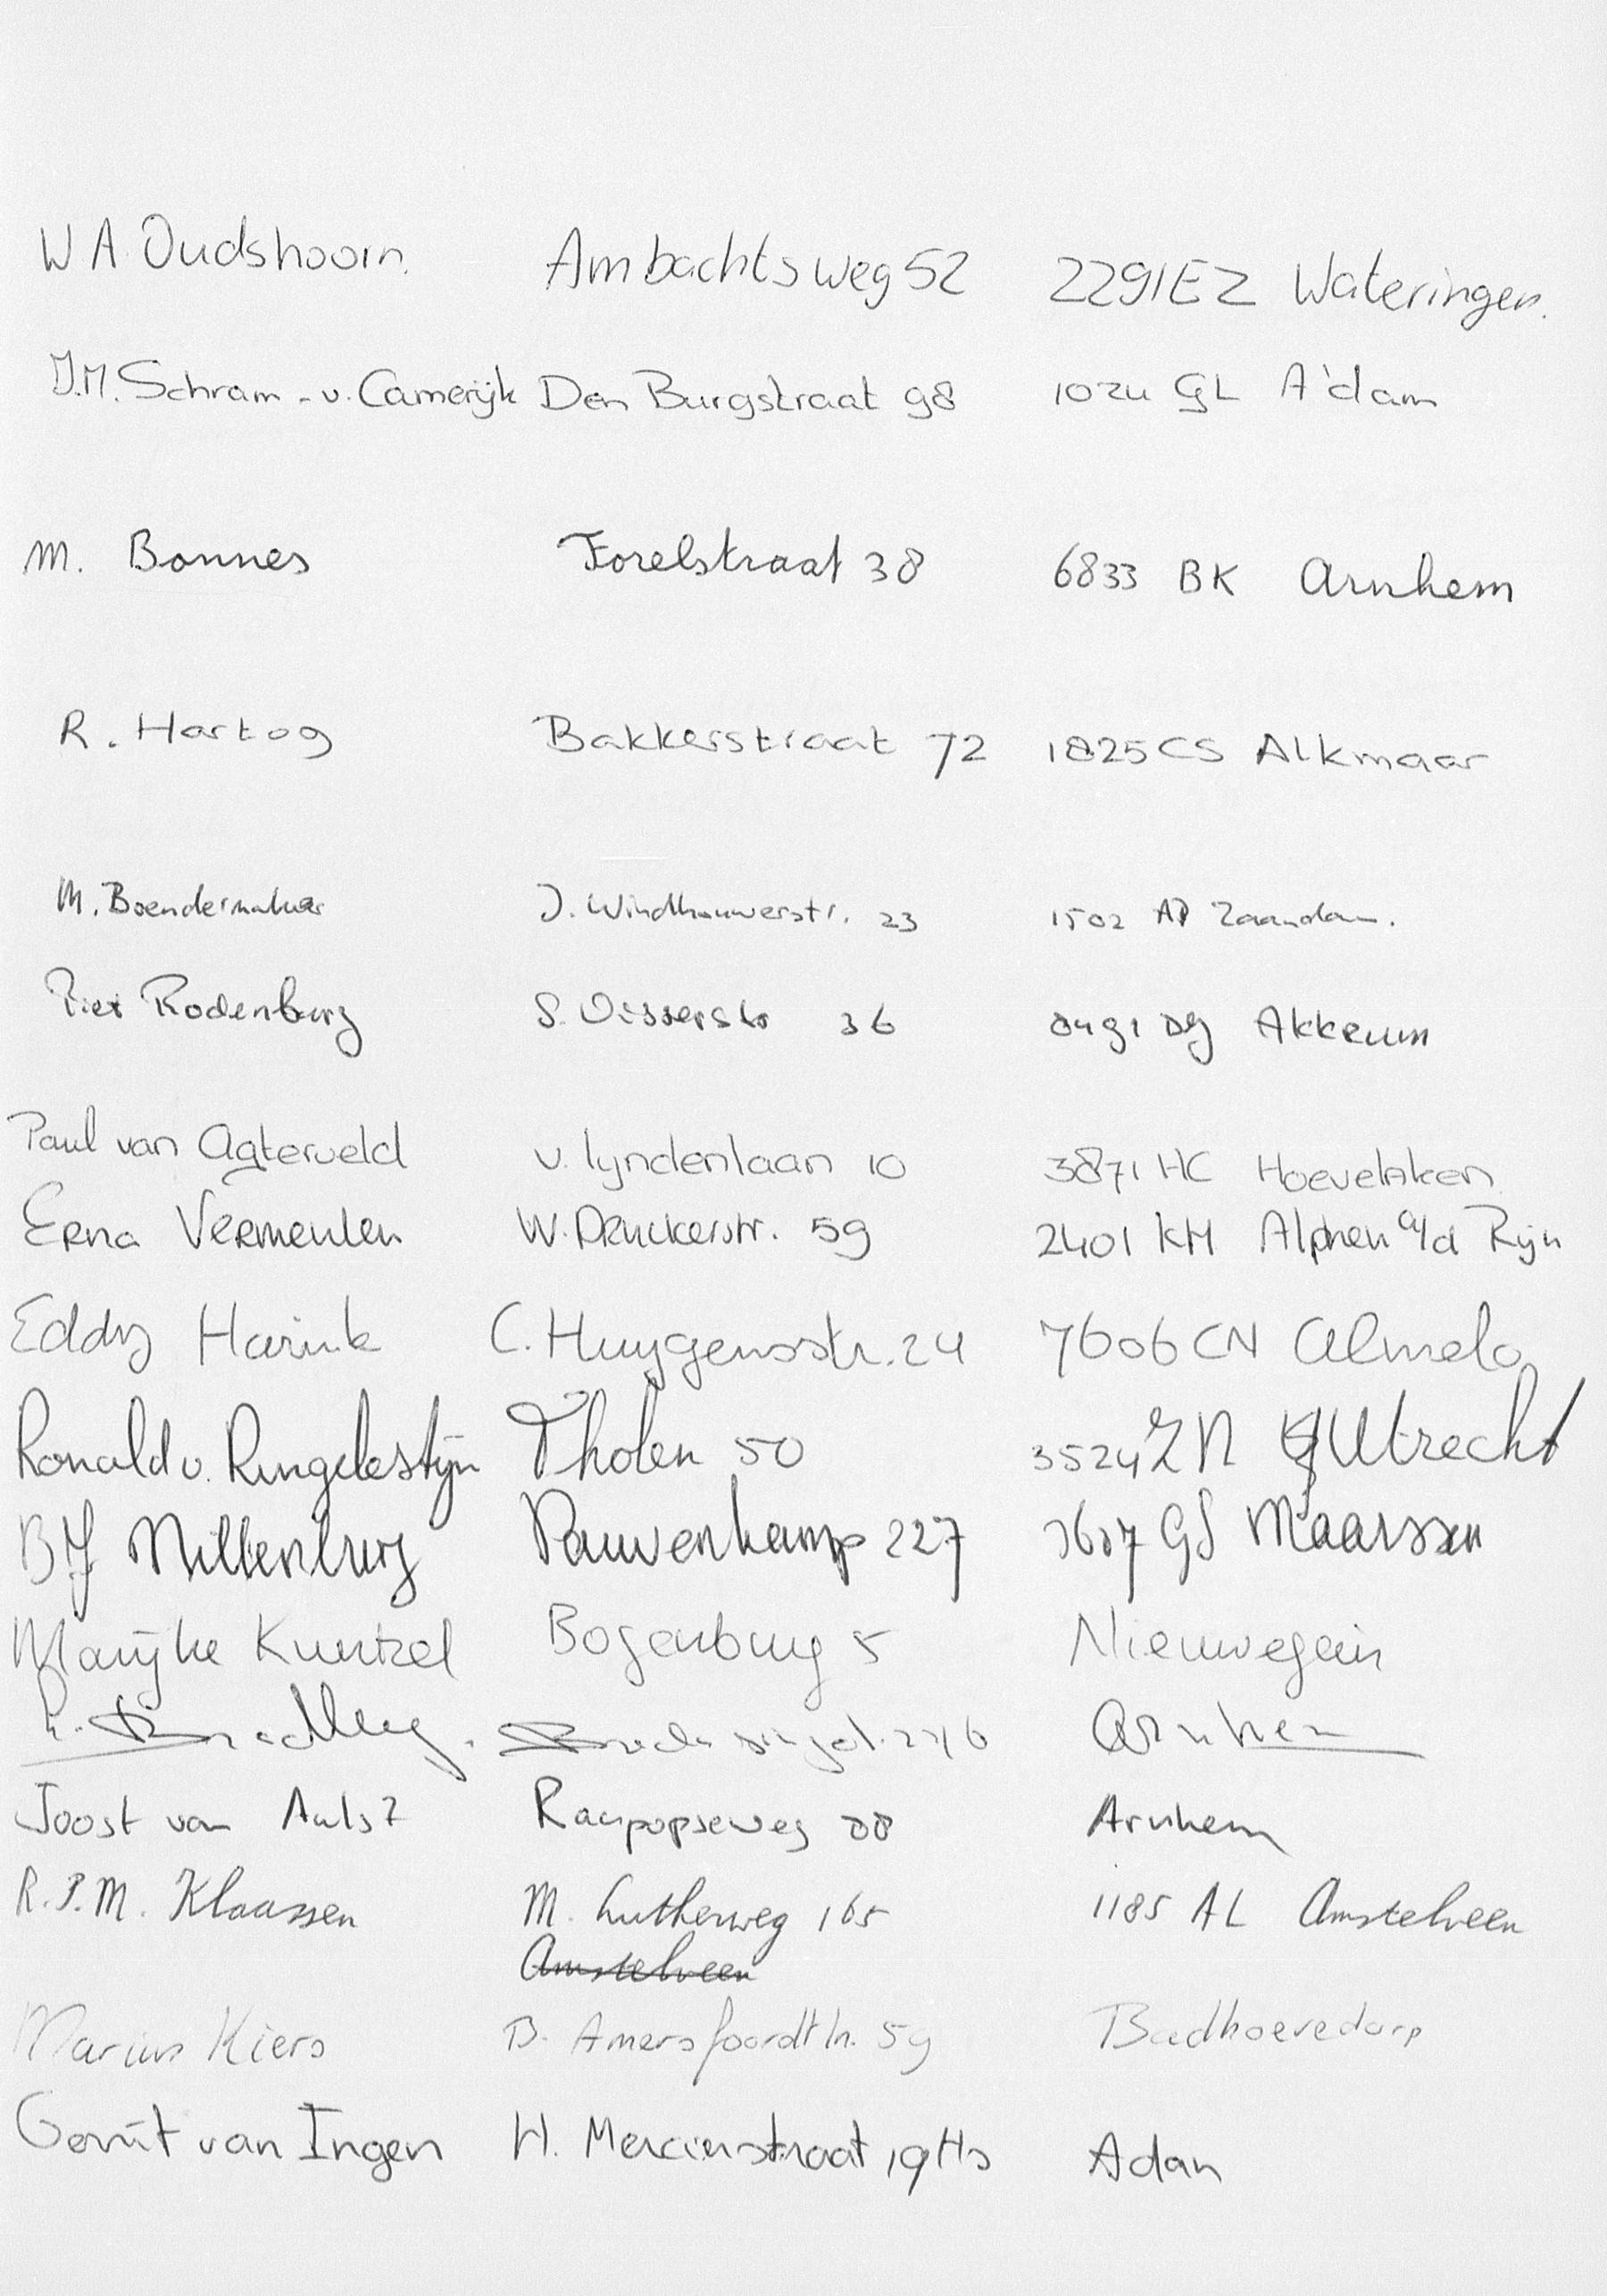 W A Oudshoorn. Ambachtsweg 52 2291EZ Wateringen.
J.M. Schram - v. Camerijk Den Burgstraat 98 1024 GL A'dam
M. Bonnes Forelstraat 38 6833 BK Arnhem
R. Hartog Bakkerstraat 72 1825 CS Alkmaar
M. Boendermaker J. Windhouwerstr. 23 1502 AP Zaandam.
Piet Rodenburg S. Visserstr 36 8491 DG Akkrum
Paul van Agterveld v. lyndenlaan 10 3871 HC Hoevelaken
Erna Vermeulen W. Druckerstr. 59 2401 KM Alphen a/d Rijn
Eddy Harink C. Huygensstr. 24 7606 CN Almelo
Ronald v. Ringelestijn Tholen 50 3524 ZN Utrecht
BJ Millenburg Pauwenkamp 227 3607 GS Maarssen
Marijke Kuntzel Bogenburg 5 Nieuwegein
Bradley. Arnhem
Joost van Raapopseweg 88 Arnhem
R.P.M. Klaassen M. Lutherweg 165 1185 AL Amstelveen
Amstelveen
Marius Kiers B. Amersfoordtln. 59 Badhoevedorp
Gerrit van Ingen H. Mercierstraat 19 Hs Adam